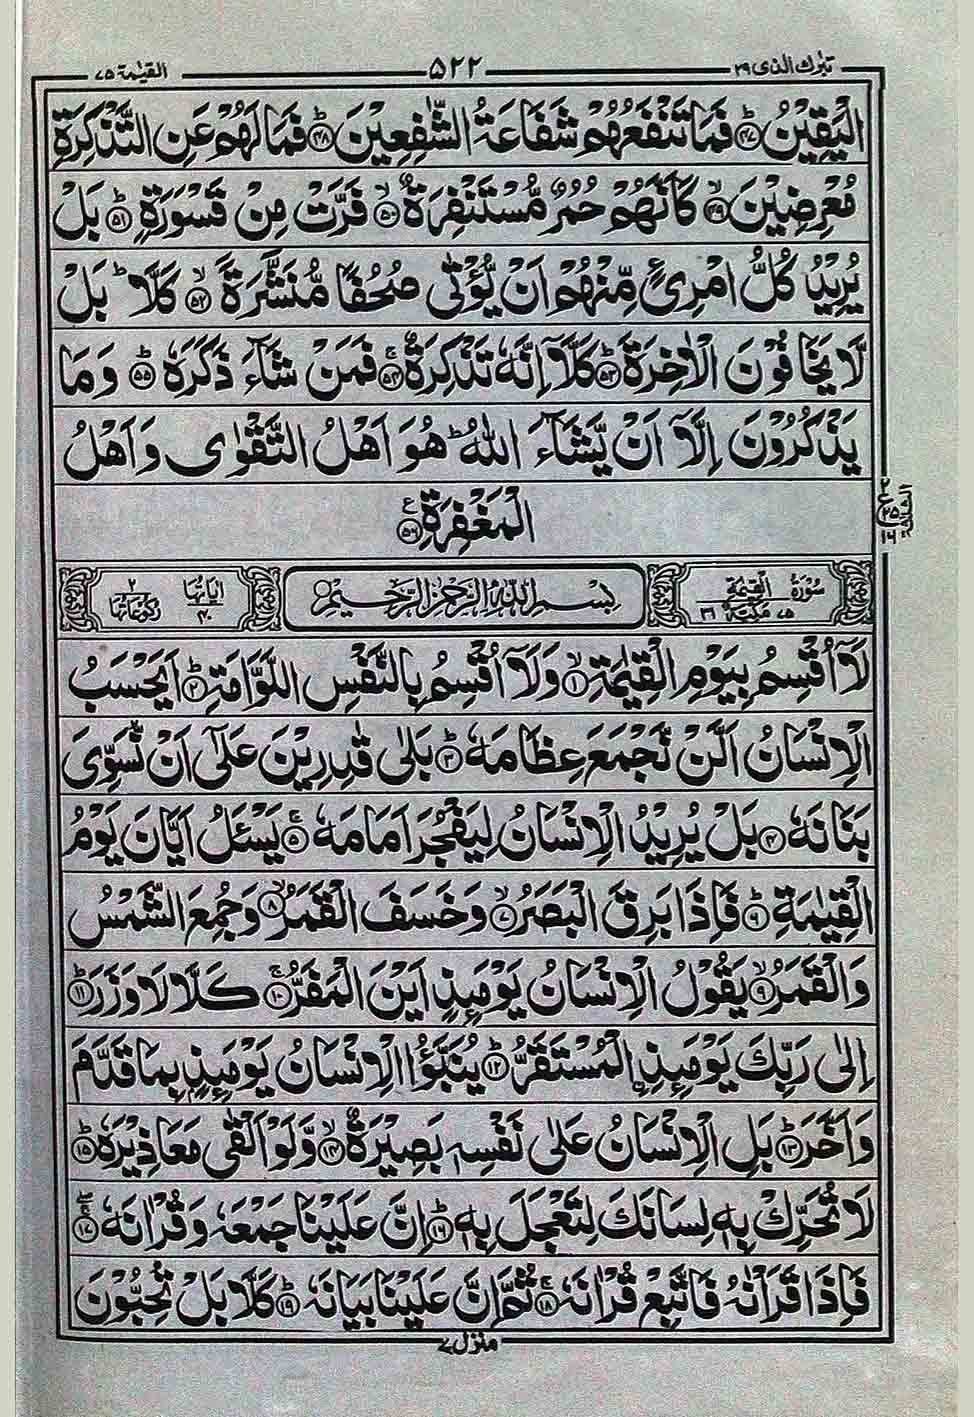 تبٰرك الذى ٢٩ ٥٢٢ القيٰمة ٧٥
الْيَقِيْنُ ؕ﴿۴۷﴾ فَمَا تَنْفَعُهُمْ شَفَاعَةُ الشّٰفِعِيْنَ ؕ﴿۴۸﴾ فَمَا لَهُمْ عَنِ التَّذْكِرَةِ
مُعْرِضِيْنَ ۙ﴿۴۹﴾ كَاَنَّهُمْ حُمُرٌ مُّسْتَنْفِرَةٌ ۙ﴿۵۰﴾ فَرَّتْ مِنْ قَسْوَرَةٍ ؕ﴿۵۱﴾ بَلْ
يُرِيْدُ كُلُّ امْرِئٍ مِّنْهُمْ اَنْ يُّؤْتٰى صُحُفًا مُّنَشَّرَةً ۙ﴿۵۲﴾ كَلَّا ؕ بَلْ
لَّا يَخَافُوْنَ الْاٰخِرَةَ ؕ﴿۵۳﴾ كَلَّاۤ اِنَّهٗ تَذْكِرَةٌ ۚ﴿۵۴﴾ فَمَنْ شَآءَ ذَكَرَهٗ ؕ﴿۵۵﴾ وَمَا
يَذْكُرُوْنَ اِلَّاۤ اَنْ يَّشَآءَ اللّٰهُ ؕ هُوَ اَهْلُ التَّقْوٰى وَاَهْلُ
الْمَغْفِرَةِ ﴿۵۶﴾
الثلٰثة
٢ ع ٢٥ ١٦
سُوْرَةُ الْقِيٰمَةِ ٧٥ مَكِّيَّةٌ ٣١
بِسْمِ اللّٰهِ الرَّحْمٰنِ الرَّحِيْمِ
اٰيَاتُهَا ٤٠ رُكُوْعَاتُهَا ٢
لَاۤ اُقْسِمُ بِيَوْمِ الْقِيٰمَةِ ۙ﴿۱﴾ وَلَاۤ اُقْسِمُ بِالنَّفْسِ اللَّوَّامَةِ ؕ﴿۲﴾ اَيَحْسَبُ
الْاِنْسَانُ اَلَّنْ نَّجْمَعَ عِظَامَهٗ ؕ﴿۳﴾ بَلٰى قٰدِرِيْنَ عَلٰۤى اَنْ نُّسَوِّىَ
بَنَانَهٗ ﴿۴﴾ بَلْ يُرِيْدُ الْاِنْسَانُ لِيَفْجُرَ اَمَامَهٗ ۚ﴿۵﴾ يَسْـَٔلُ اَيَّانَ يَوْمُ
الْقِيٰمَةِ ؕ﴿۶﴾ فَاِذَا بَرِقَ الْبَصَرُ ۙ﴿۷﴾ وَخَسَفَ الْقَمَرُ ۙ﴿۸﴾ وَجُمِعَ الشَّمْسُ
وَالْقَمَرُ ۙ﴿۹﴾ يَقُوْلُ الْاِنْسَانُ يَوْمَئِذٍ اَيْنَ الْمَفَرُّ ۚ﴿۱۰﴾ كَلَّا لَا وَزَرَ ؕ﴿۱۱﴾
اِلٰى رَبِّكَ يَوْمَئِذِۣ الْمُسْتَقَرُّ ؕ﴿۱۲﴾ يُنَبَّؤُا الْاِنْسَانُ يَوْمَئِذٍۭ بِمَا قَدَّمَ
وَاَخَّرَ ؕ﴿۱۳﴾ بَلِ الْاِنْسَانُ عَلٰى نَفْسِهٖ بَصِيْرَةٌ ۙ﴿۱۴﴾ وَّلَوْ اَلْقٰى مَعَاذِيْرَهٗ ؕ﴿۱۵﴾
لَا تُحَرِّكْ بِهٖ لِسَانَكَ لِتَعْجَلَ بِهٖ ؕ﴿۱۶﴾ اِنَّ عَلَيْنَا جَمْعَهٗ وَقُرْاٰنَهٗ ۚۖ﴿۱۷﴾
فَاِذَا قَرَاْنٰهُ فَاتَّبِعْ قُرْاٰنَهٗ ۚ﴿۱۸﴾ ثُمَّ اِنَّ عَلَيْنَا بَيَانَهٗ ؕ﴿۱۹﴾ كَلَّا بَلْ تُحِبُّوْنَ
منزل ٧